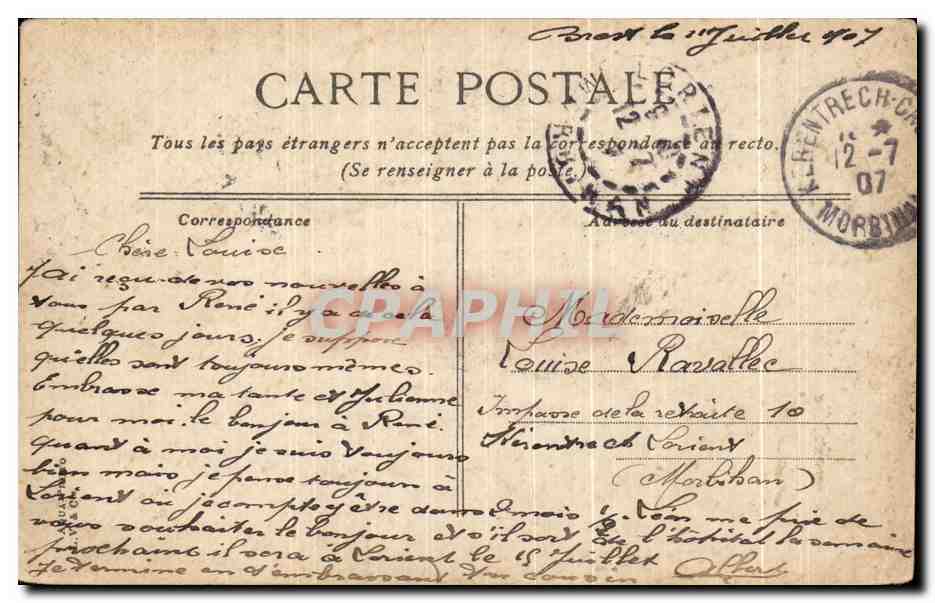 Brest le 11 Juillet 1907
CARTE POSTALE
Tous les pays étrangers n'acceptent pas la correspondance au recto.
(Se renseigner à la poste.)
Correspondance
Adresse du destinataire
KERENTRECH
12 -7
07
MORBIHAN
LORIENT
MORBIHAN
Chère Louise
J'ai reçu de vos nouvelles à
vous par René il y a de cela
quelques jours. je suppose
qu'elles sont toujours mêmes.
Embrasse ma tante et Julienne
pour moi. le bonjour à René.
quant à moi je suis toujours
bien mais je pense toujours à
Lorient où je compte y être dans 2 mois 1/2. me prie de
vous souhaiter le bonjour et s'il sort de l'hôpital la semaine
prochaine il sera à Lorient le 15 Juillet
Je termine en t'embrassant ton cousin Albert
Mademoiselle
Louise Ravallec
Impasse de la retraite 10
Kerentrech Lorient
(Morbihan)
CPAPHIL